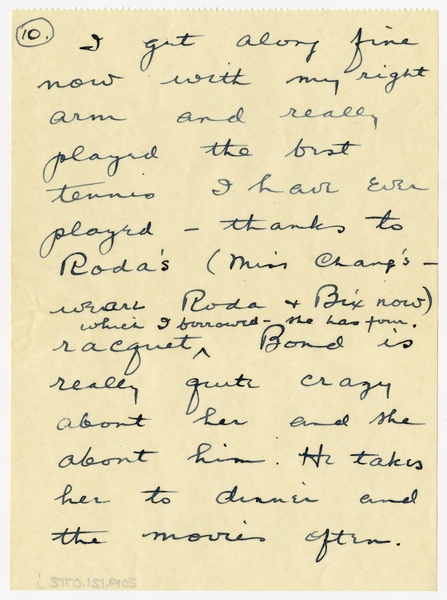 10.
I get along fine
now with my right
arm and really
played the best
tennis I have ever
played – thanks to
Roda's (Miss Chang's –
we are Roda & Bix now)
which I borrowed – she has four.
racquet ‸ Bond is
really quite crazy
about her and she
about him. He takes
her to dinner and
the movies often.
2019.121.0712 j